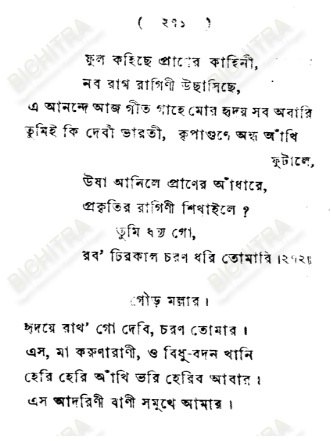 ( ২৭১ )
ফুল কহিছে প্রাণের কাহিনী,
নব রাগ রাগিণী উছাসিছে,
এ আনন্দে আজ গীত গাহে মোর হৃদয় সব অবারি
তুমিই কি দেবী ভারতী, কৃপাগুণে অন্ধ আঁখি
ফুটালে,
উষা আনিলে প্রাণের আঁধারে,
প্রকৃতির রাগিণী শিখাইলে ?
তুমি ধন্য গো,
রব' চিরকাল চরণ ধরি তোমারি ।২৭২॥
গৌড় মল্লার ।
হৃদয়ে রাখ' গো দেবি, চরণ তোমার ।
এস, মা করুণারাণী, ও বিধু-বদন খানি
হেরি হেরি আঁখি ভরি হেরিব আবার ।
এস আদরিণী বাণী সমুখে আমার ।
BICHITRA